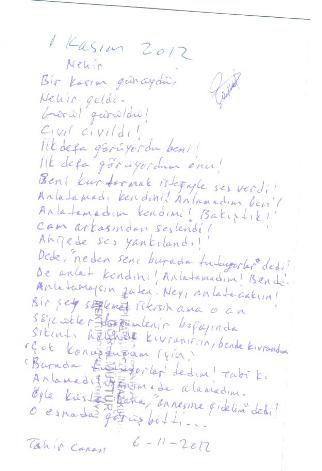 1 Kasım 2012
Nehir
Bir kasım günüydü,
Nehir geldi.
Gürül gürüldü!
Cıvıl cıvıldı!
İlk defa görüyordu beni!
İlk defa görüyordum onu!
Beni kurtarmak isteğiyle ses verdi!
Anlatamadı kendini! Anlamadım ben!
Anlatamadım kendimi! Bakıştık!
Cam arkasından seslendi!
Ahizede ses yankılandı!
Dede, "neden seni burada tutuyorlar" dedi!
De anlat kendini! Anlatamadım! Bende
Anlatamazsın zaten. Neyi anlatacaksın!
Bir şey söylemek istersin ama o an
Sözcükler boğazında
Sıkıntı kıvranırsın, bende kıvrandım
Çok konuştuğum için!
Burada tutuyorlar dedim! Tabi ki
Anlamadı alamadım.
Öyle "annesine gidelim" dedi!
O esnada görüş bitti...
Tahir Canan 6-11-2012